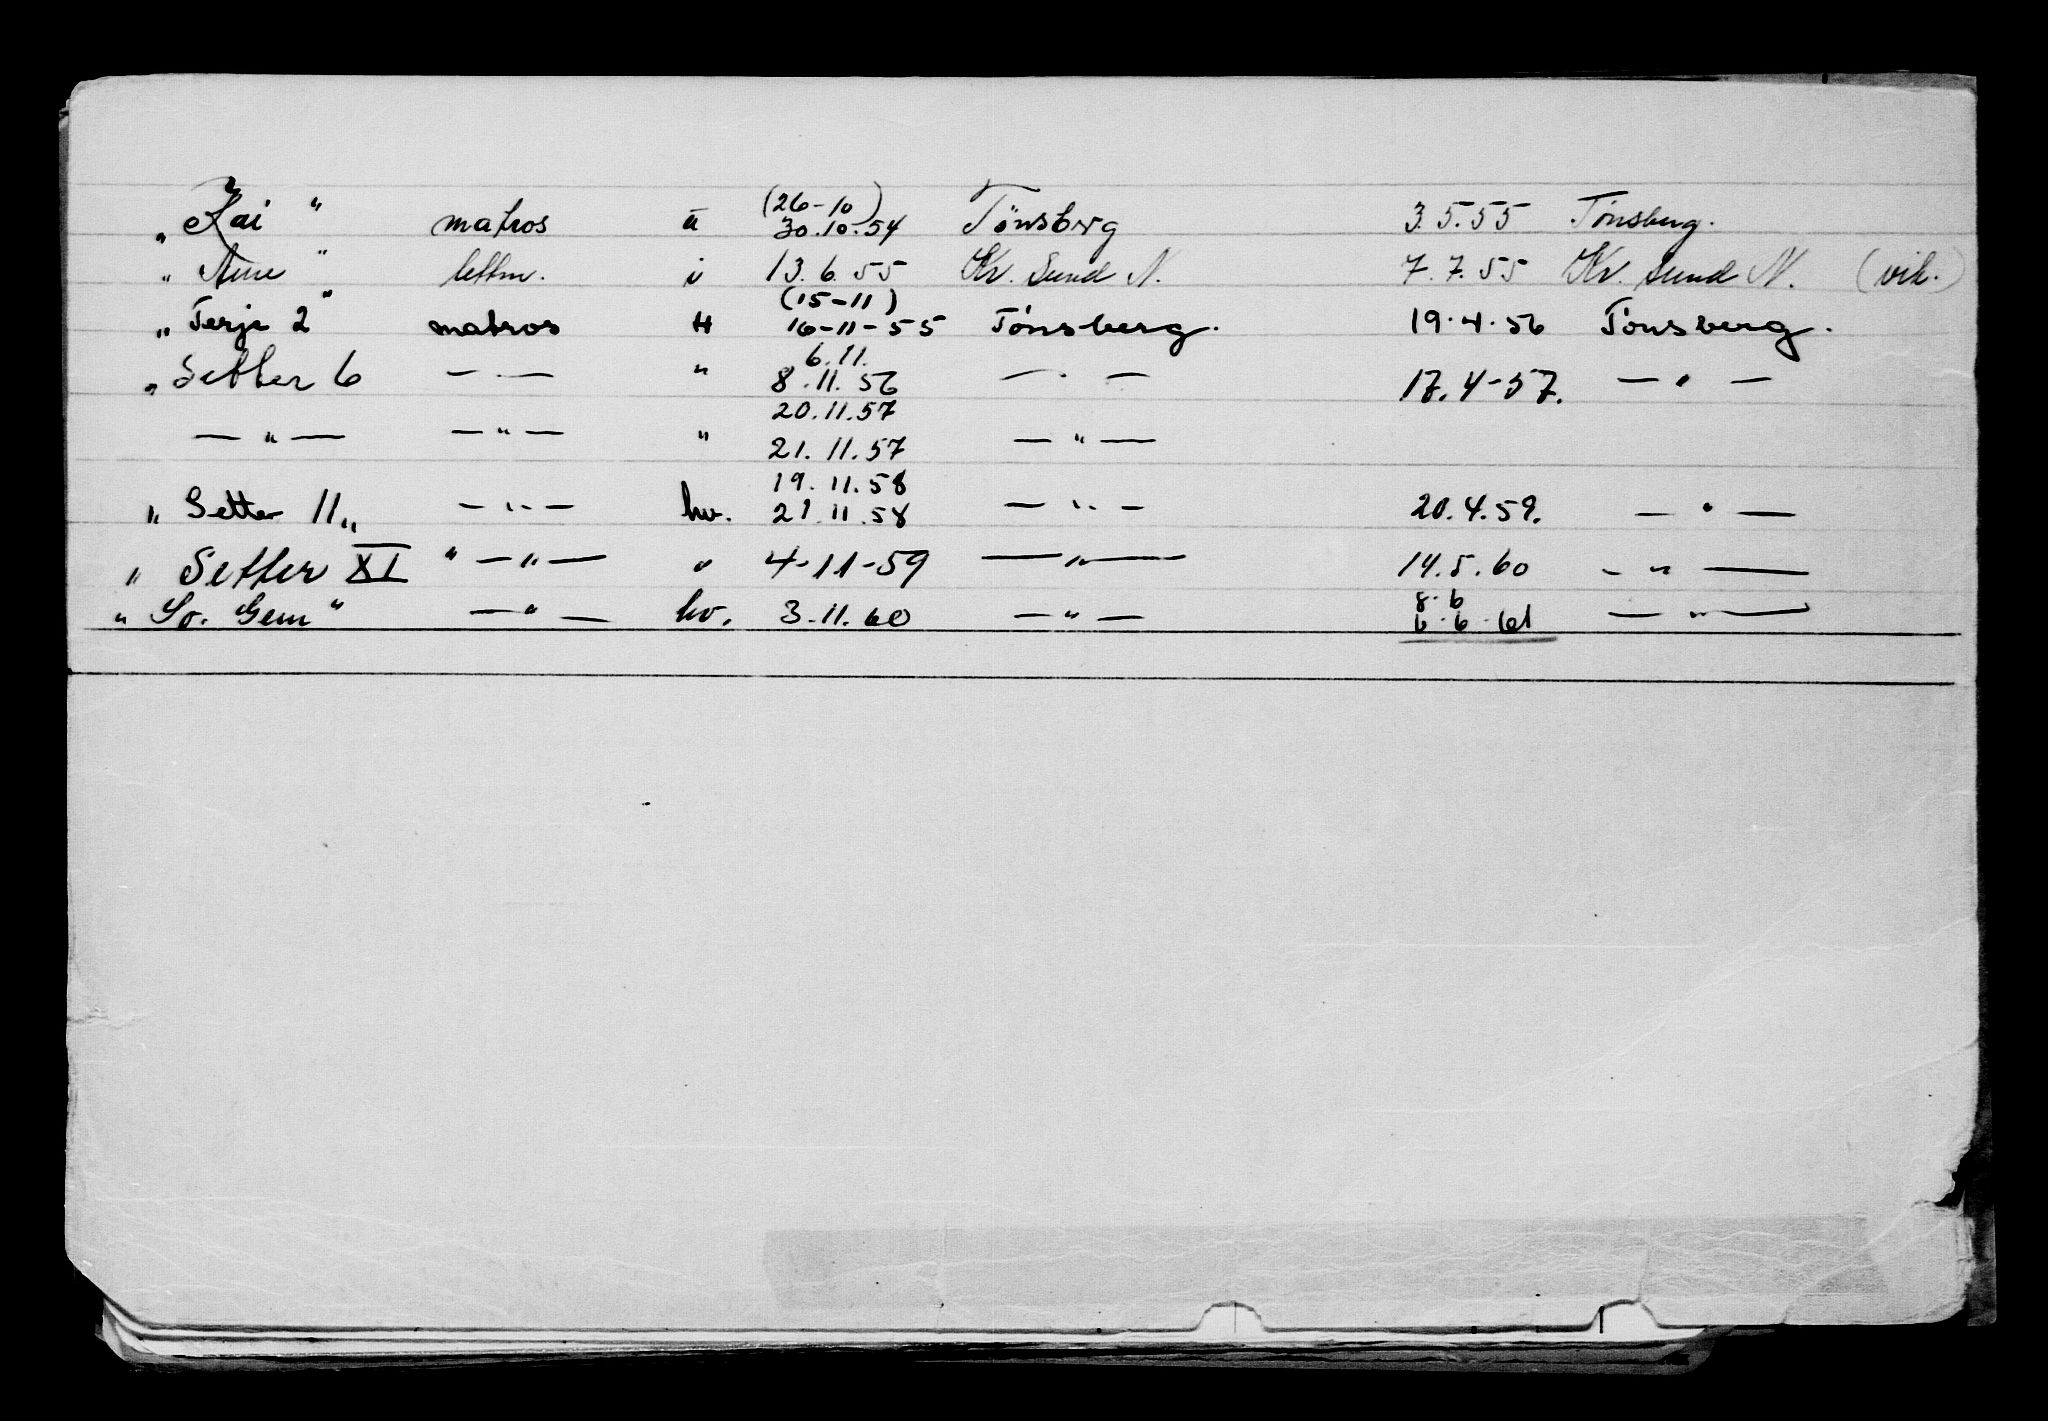 (26-10)
„ Kai " matros u 30.10.54 Tönsberg 3.5.55 Tönsberg.
„ " lettm. i 13.6.55 Kr. Sund N. 7.7.55 Kr. Sund N. (vik.)
(15-11)
„ Terje 2" matros H 16-11-55 Tönsberg. 19.4.56 Tönsberg.
6.11.
„ Setter 6 — . — " 8.11.56 — . — 17.4-57. — " —
20.11.57
— " — — " — " 21.11.57 — " —
19.11.58
„ Setter 11„ — " — hv. 21.11.58 — " — 20.4.59. — " —
„ Setter XI " — " — " 4-11-59 — " — 14.5.60 — " —
8.6
„ So. Gem " — " — hv. 3.11.60 — " — 6.6.61 — " —